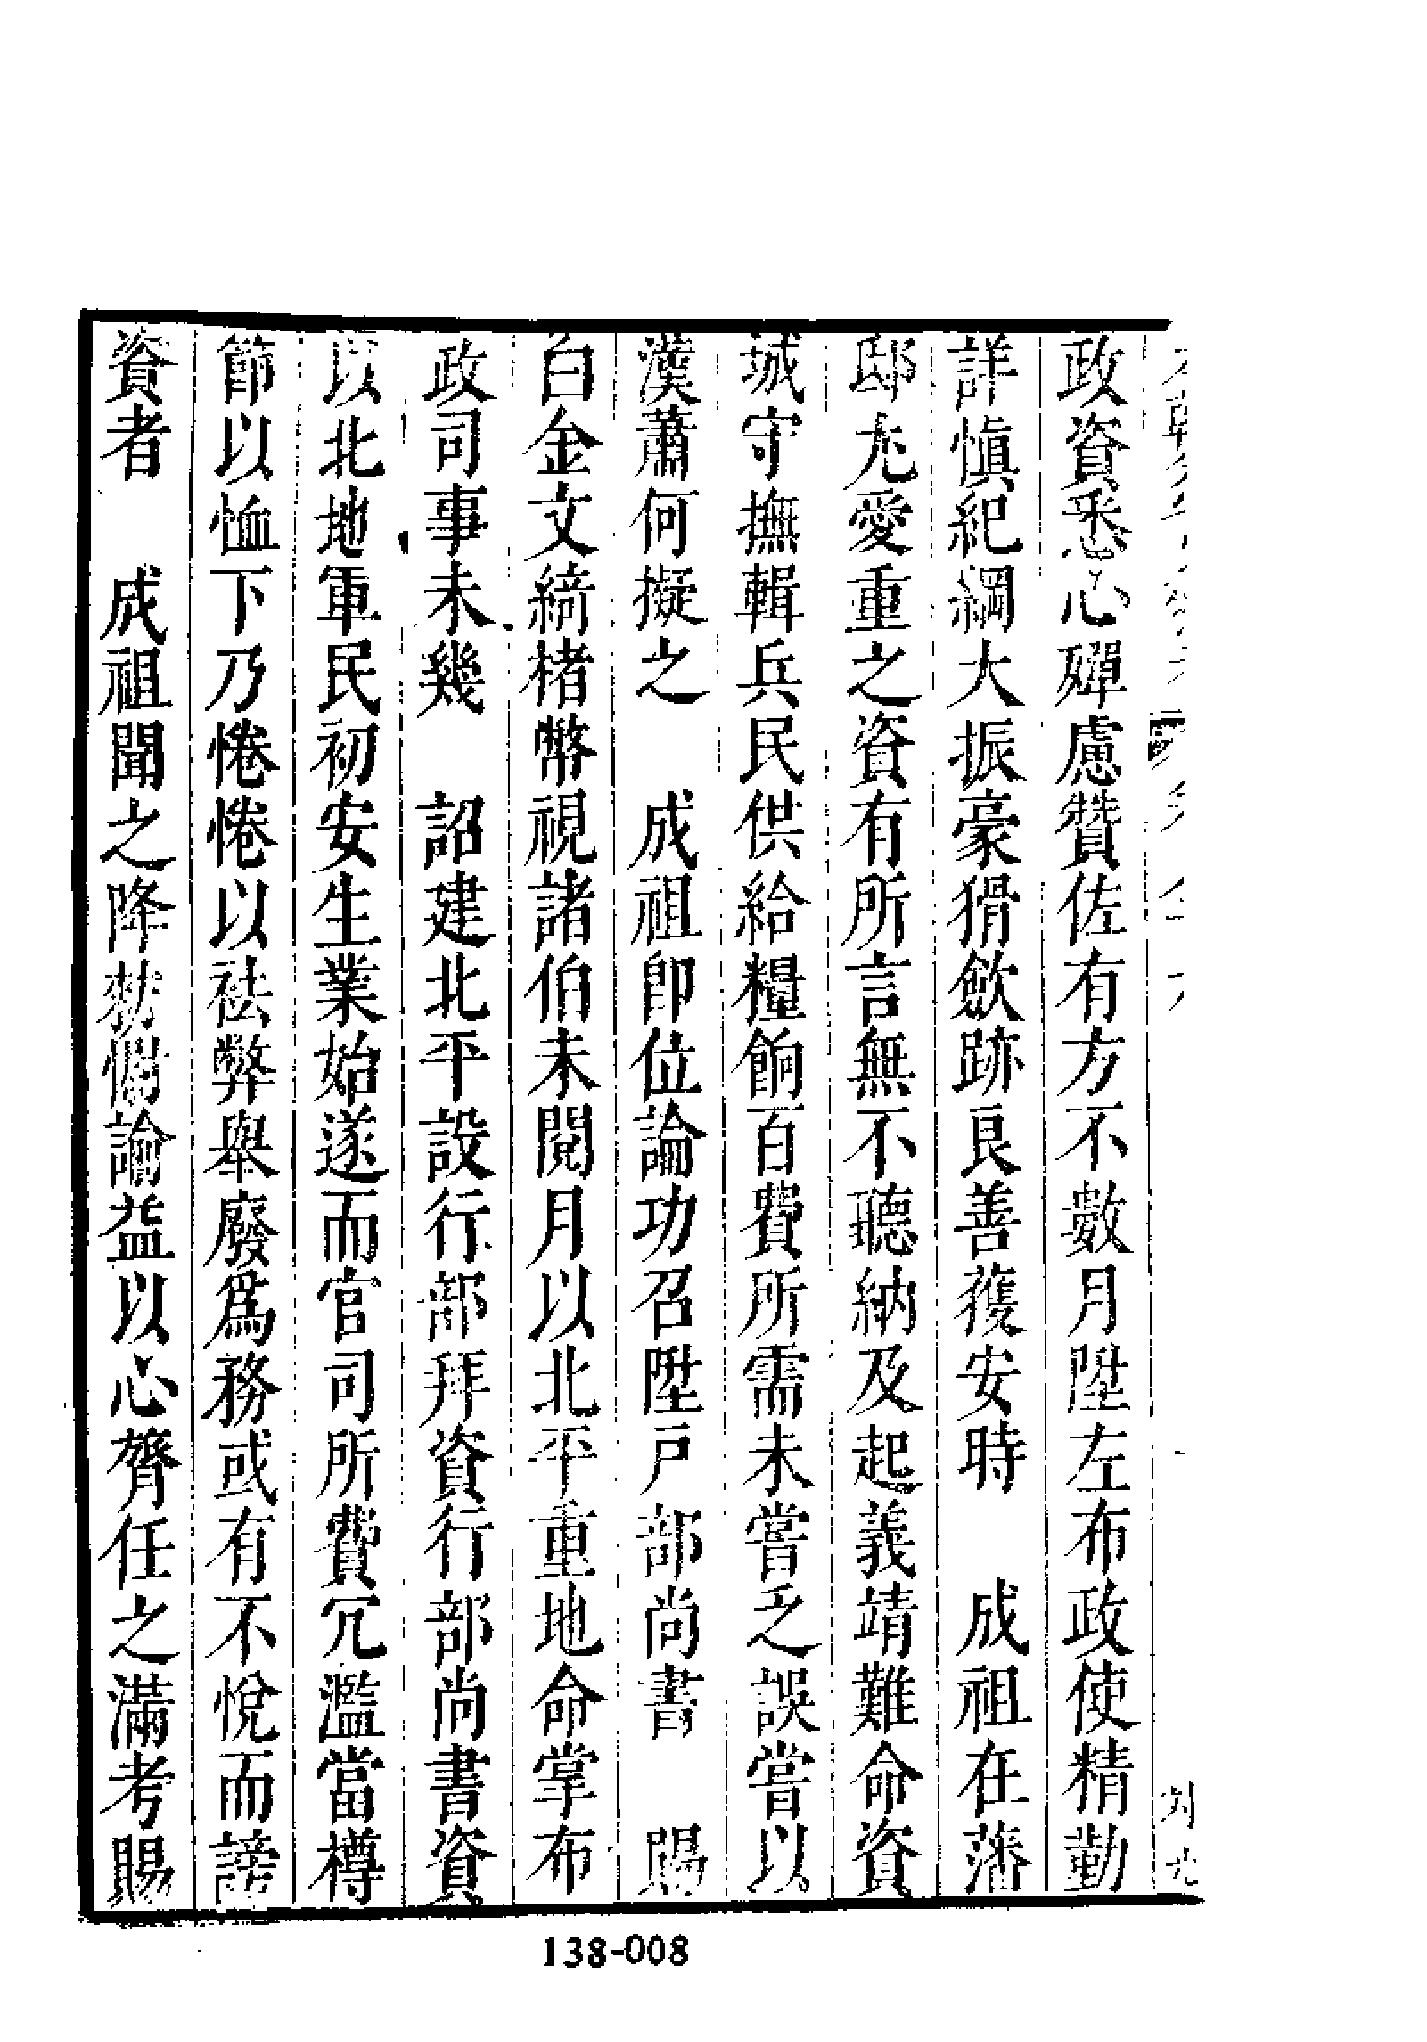 政資悉心殫慮贊佐有方不數月陞左布政使精勤
詳慎紀綱大振豪猾斂跡良善獲安時　成祖在藩
邸尤愛重之資有所言無不聽納及起義靖難命資
城守撫輯兵民供給糧餉百費所需未嘗乏誤嘗以
漢蕭何擬之　成祖即位論功召陞戶部尚書　賜
白金文綺楮幣視諸伯未閱月以北平重地命掌布
政司事未幾　詔建北平設行部拜資行部尚書資
以北地軍民初安生業始遂而官司所費冗濫當樽
節以恤下乃惓惓以祛弊舉廢爲務或有不悅而謗
資者　成祖聞之降勑慰諭益以心膂任之滿考賜
138-008